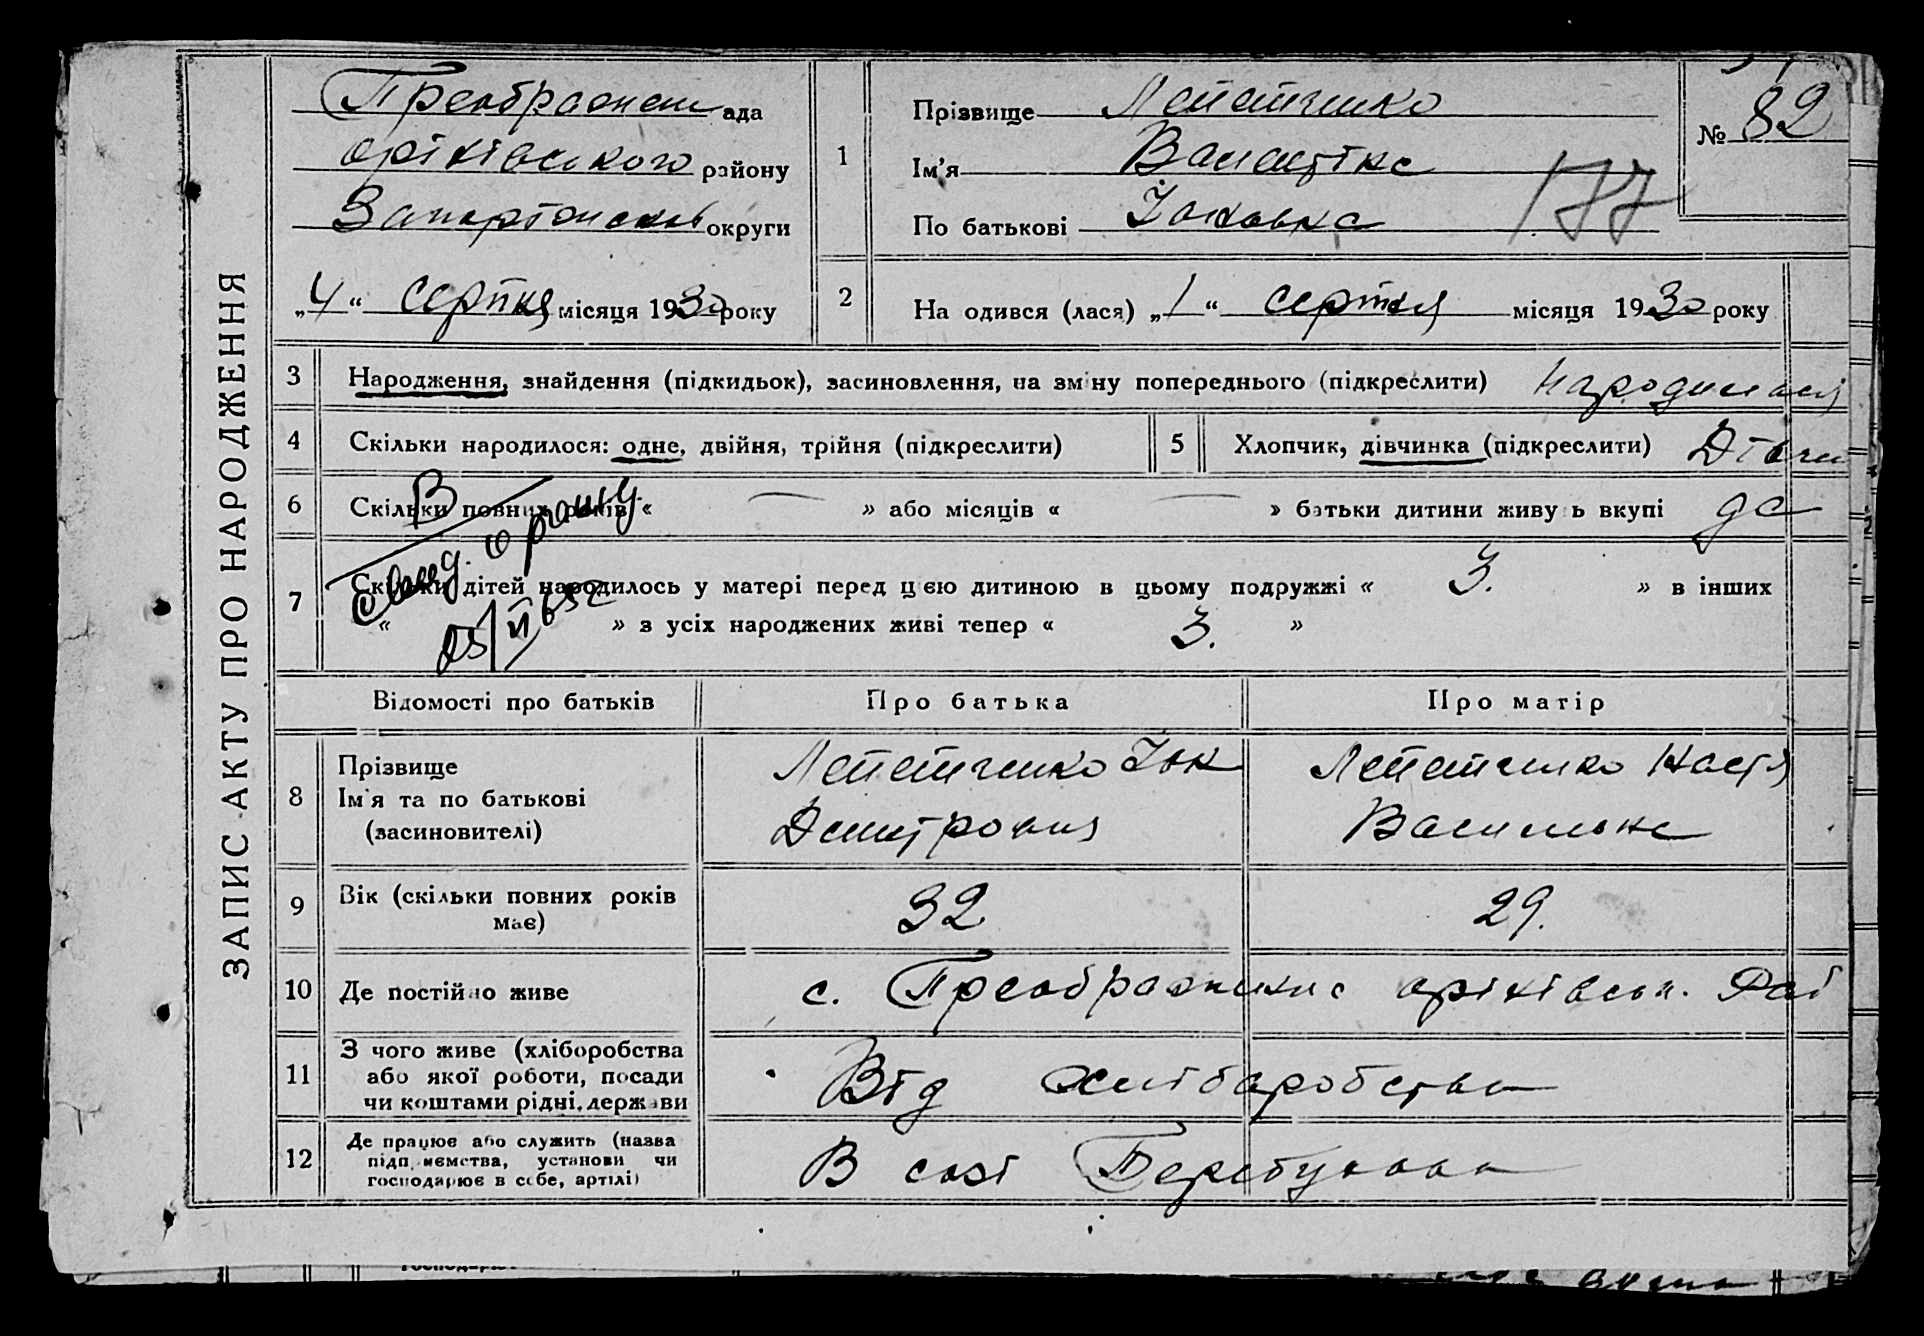 ЗАПИС АКТУ ПРО НАРОДЖЕННЯ
Преображен ада
оріхівського району
округи
„4“ серпня місяця 1930 року
1
Прізвище Лепетченко
Ім'я Валентіна
По батькові
177
№ 82
2
На одився (лася) „1“ серпня місяця 1930 року
3
Народження, знайдення (підкидьок), засиновлення, на зміну попереднього (підкреслити)
4
Скільки народилося: одне, двійня, трійня (підкреслити)
5
Хлопчик, дівчинка (підкреслити) Дівчи
6
Скільки повних років « — » або місяців « — » батьки дитини живу ь вкупі да
7
Скільки дітей народилось у матері перед цією дитиною в цьому подружжі « 3. » в інших
« » з усіх народжених живі тепер « 3. »
Відомості про батьків
Про батька
Про матір
8
Прізвище
Ім'я та по батькові
(засиновителі)
Лепетченко Іок
Дмитрович
Лепетченко Настя
Васильна
9
Вік (скільки повних років
має)
32
29.
10
Де постійно живе
с. Преображенка оріхівськ. Рай
11
З чого живе (хліборобства
або якої роботи, посади
чи коштами рідні, держави
Від хліборобства
12
Де працює або служить (назва
підприємства, установи чи
господарює в себе, артілі)
В созі